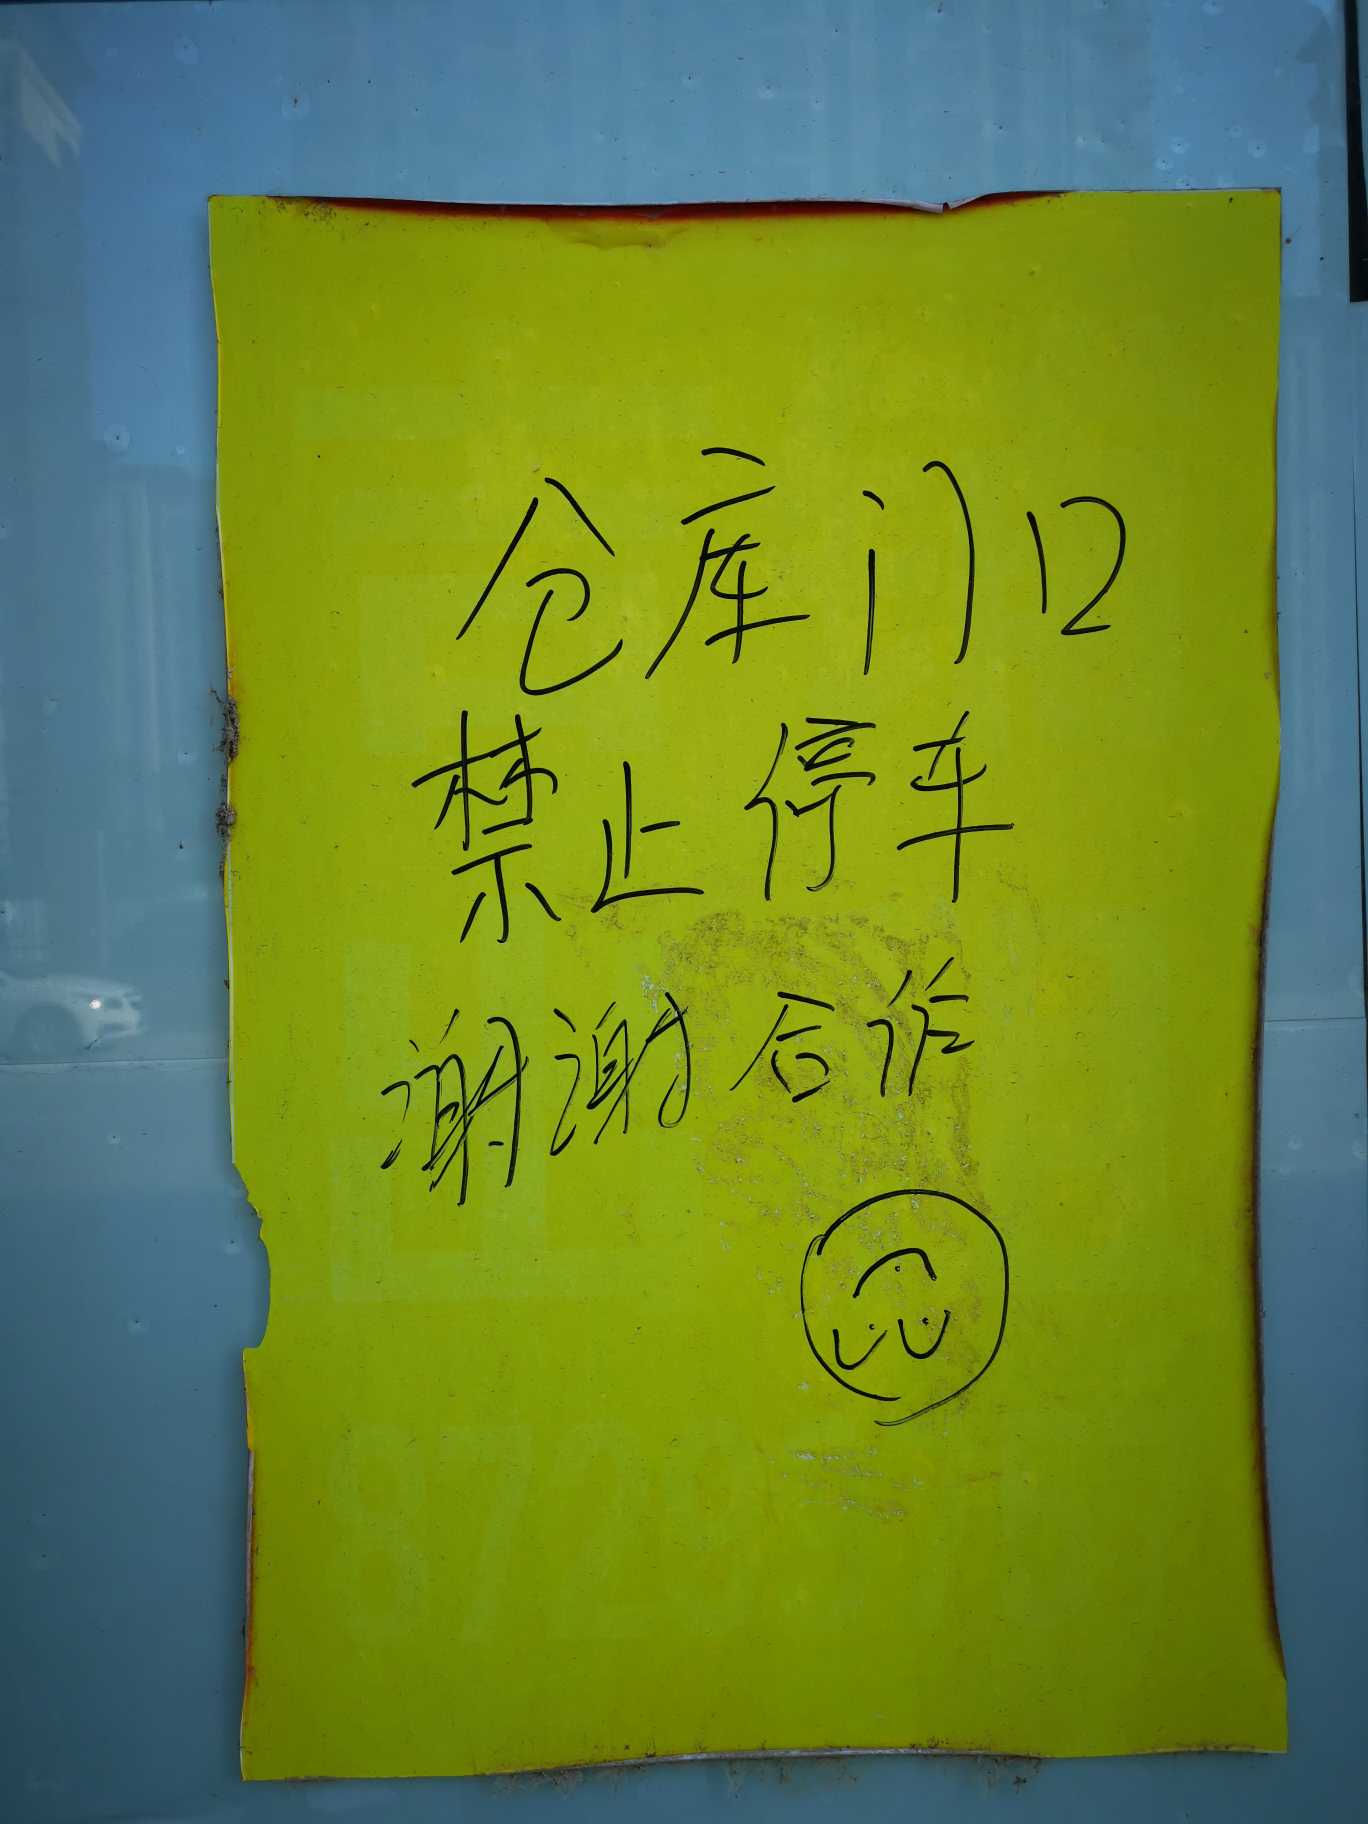 仓库门口
禁止停车
谢谢合作